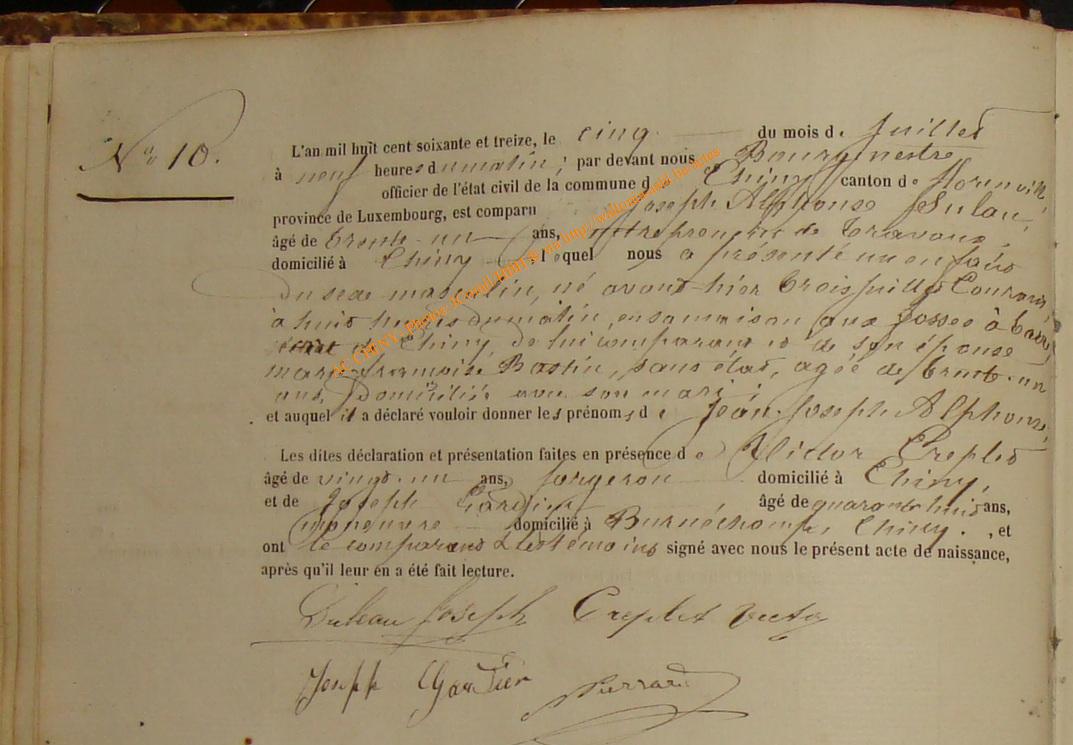 No 10.
L'an mil huit cent soixante et treize, le cinq du mois de Juillet
à neuf heures du matin, par devant nous Bourgmestre
officier de l'état civil de la commune de Chiny canton de Florenville,
province de Luxembourg, est comparu Joseph Alphonse Dulau,
âgé de trente-un ans, entrepreneur de travaux,
domicilié à Chiny, lequel nous a présenté un enfant
du sexe masculin, né avant-hier trois juillet courant,
à huit heures du matin, en sa maison aux fosses à
Chiny de lui comparant et de son épouse
Marie Françoise Bastin, sans état, agée de trente-un
ans, domiciliée avec son mari;
et auquel il a déclaré vouloir donner les prénoms de Jean Joseph Alphonse,
Les dites déclaration et présentation faites en présence de Victor Creplet
âgé de vingt-un ans, forgeron domicilié à Chiny,
et de Joseph âgé de quarante huit ans,
manœuvre domicilié à Burnéchamps, Chiny, et
ont le comparant & les témoins signé avec nous le présent acte de naissance,
après qu'il leur en a été fait lecture.
Duleau Joseph Creplet Victor
Joseph
AC CHINY - Photos